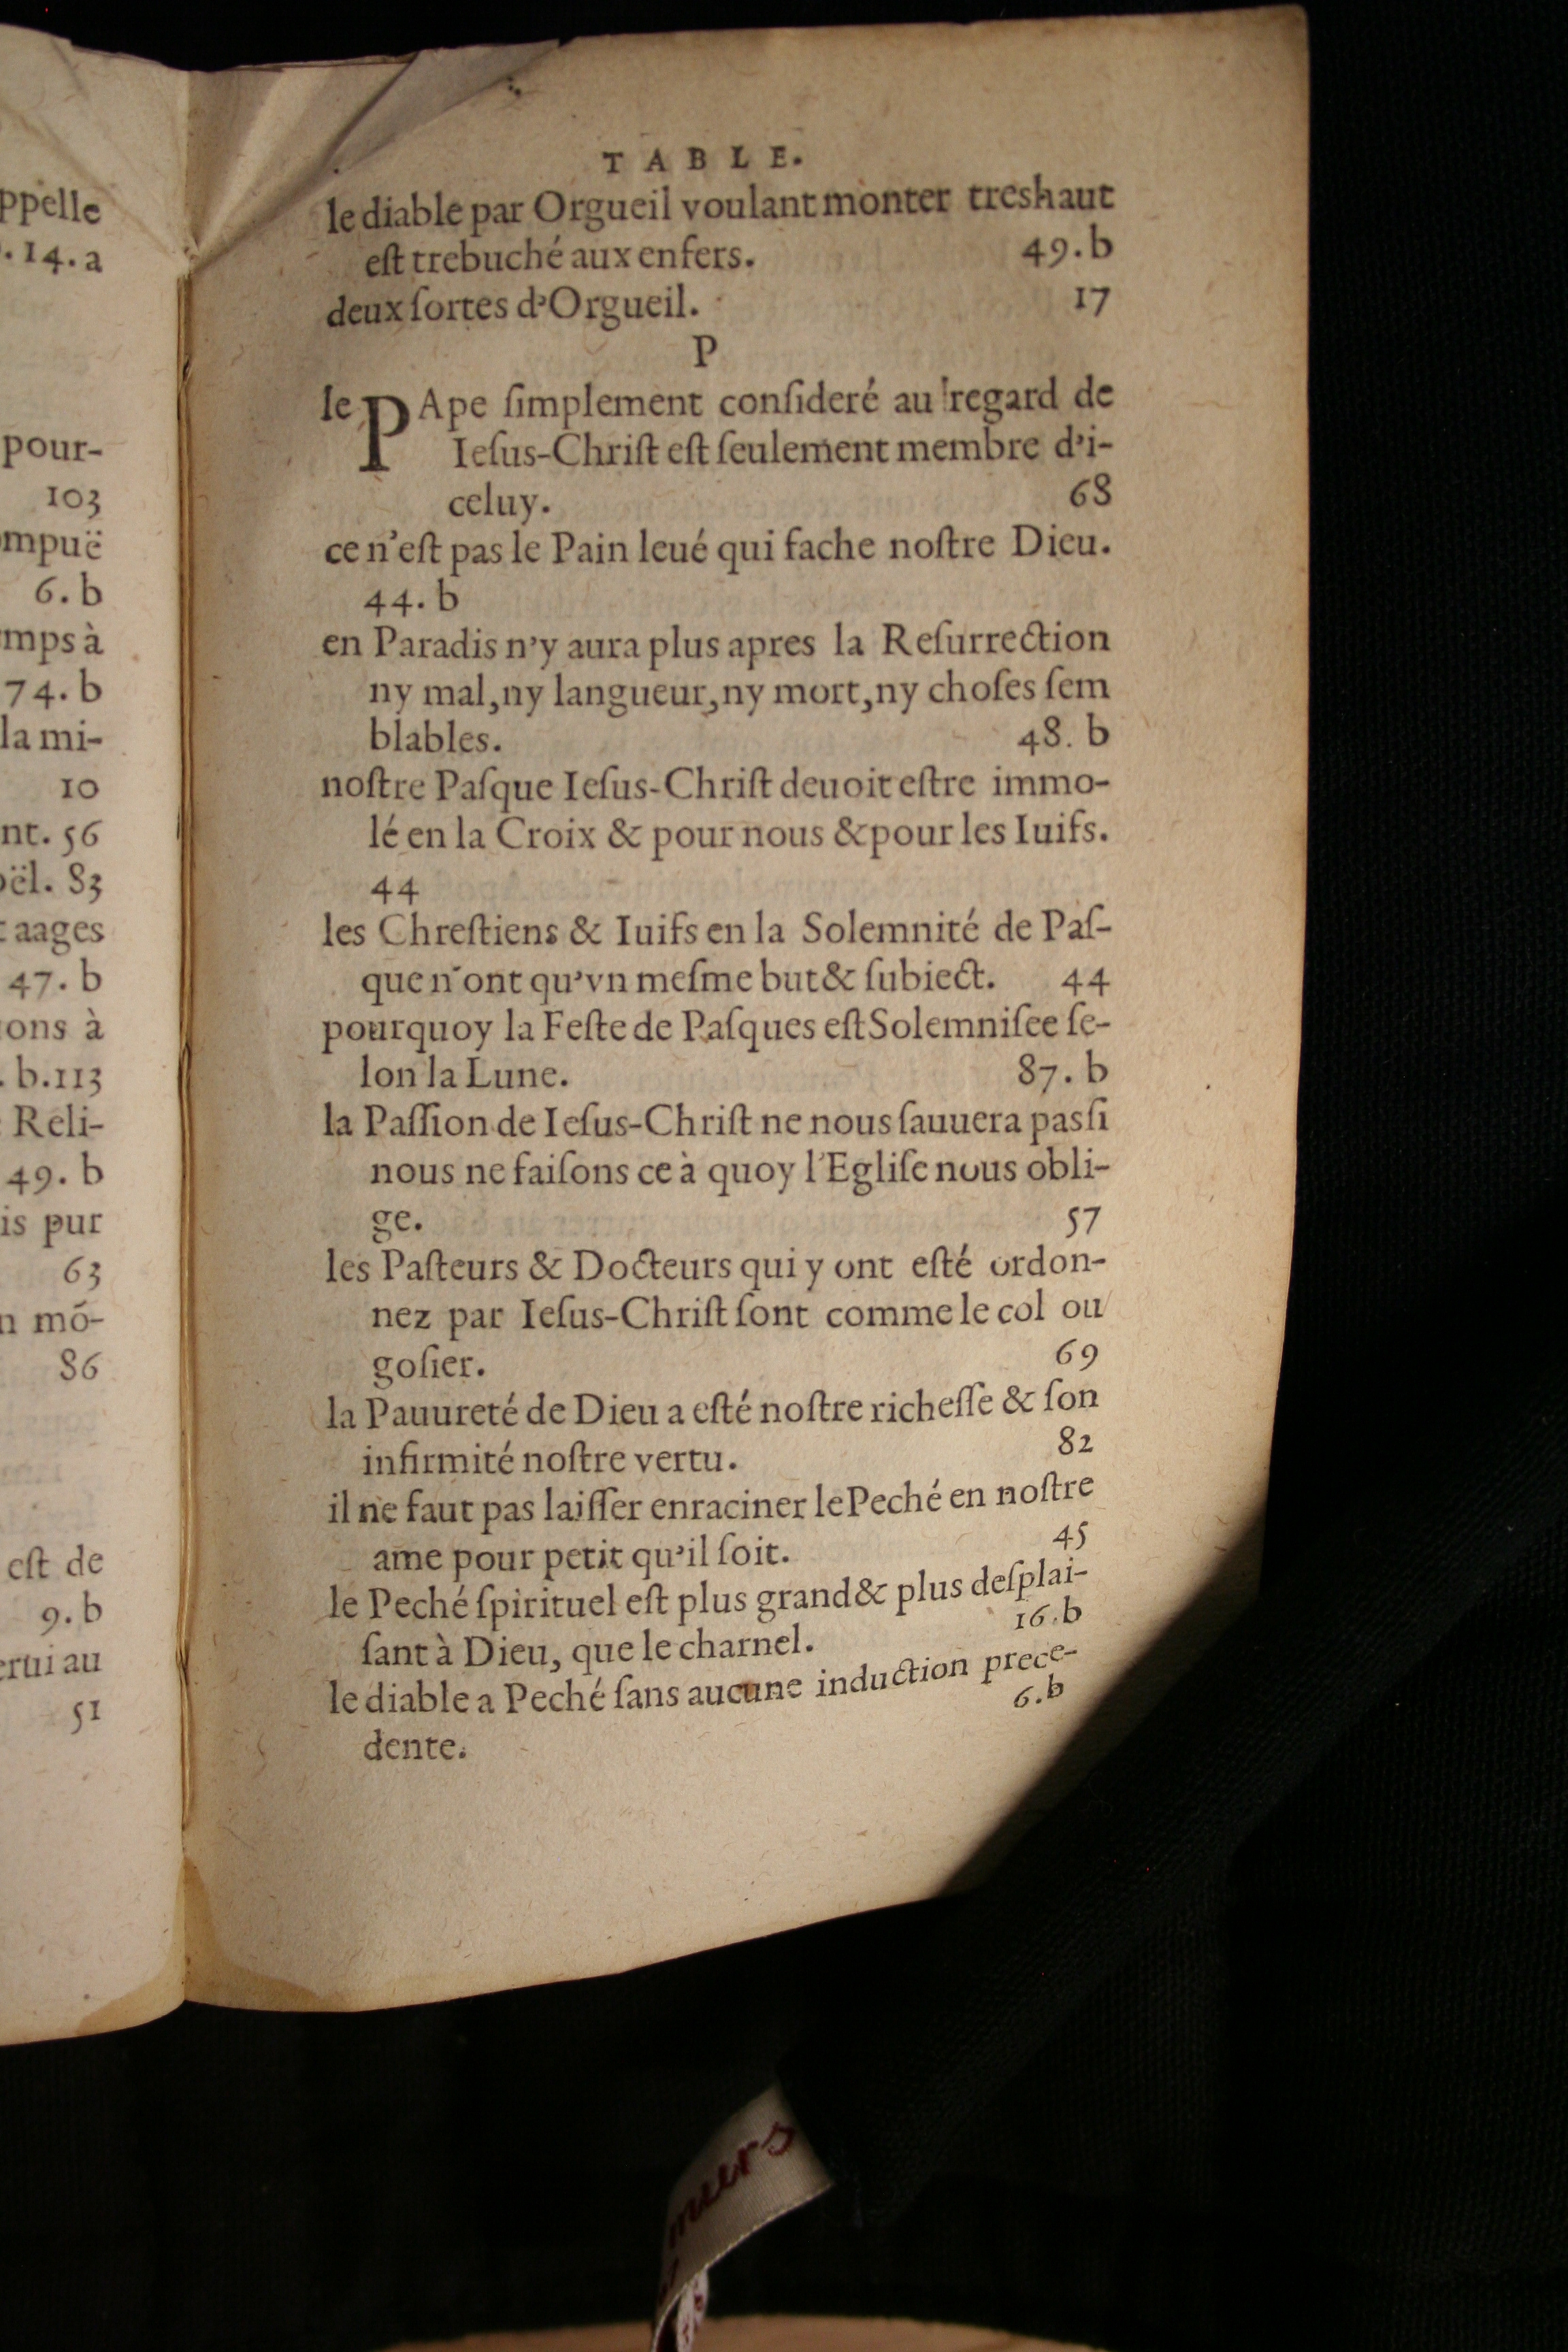 ppelle
. 14. a
pour-
103
mpuë
6. b
mps à
74. b
la mi-
10
nt. 56
oël. 83
aages
47. b
ons à
. b. 113
Reli-
49. b
is pur
63
n mō-
86
est de
9. b
erui au
51
TABLE.
le diable par Orgueil voulant monter treshaut
eſt trebuché aux enfers. 49. b
deux ſortes d'Orgueil. 17
P
le PApe ſimplement conſideré au regard de
Ieſus-Chriſt eſt ſeulement membre d'i-
celuy. 68
ce n'eſt pas le Pain leué qui fache noſtre Dieu.
44. b
en Paradis n'y aura plus apres la Reſurrection
ny mal, ny langueur, ny mort, ny choſes ſem
blables. 48. b
noſtre Paſque Ieſus-Chriſt deuoit eſtre immo-
lé en la Croix & pour nous & pour les Iuifs.
44
les Chreſtiens & Iuifs en la Solemnité de Paſ-
que n'ont qu'vn meſme but & ſubiect. 44
pourquoy la Feſte de Paſques eſt Solemniſee ſe-
lon la Lune. 87. b
la Paſſion de Ieſus-Chriſt ne nous ſauuera pas ſi
nous ne faiſons ce à quoy l'Egliſe nous obli-
ge. 57
les Paſteurs & Docteurs qui y ont eſté ordon-
nez par Ieſus-Chriſt ſont comme le col ou
goſier. 69
la Pauureté de Dieu a eſté noſtre richeſſe & ſon
infirmité noſtre vertu. 82
il ne faut pas laiſſer enraciner le Peché en noſtre
ame pour petit qu'il ſoit. 45
le Peché ſpirituel eſt plus grand & plus deſplai-
ſant à Dieu, que le charnel. 16. b
le diable a Peché ſans aucune induction prece-
dente. 6. b